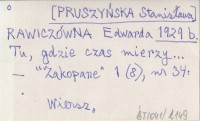 [PRUSZYŃSKA Stanisława]
RAWICZÓWNA Edwarda 1929 b.
Tu, gdzie czas mierzy...
- "Zakopane" 1 (8), nr 34.
Wiersz.